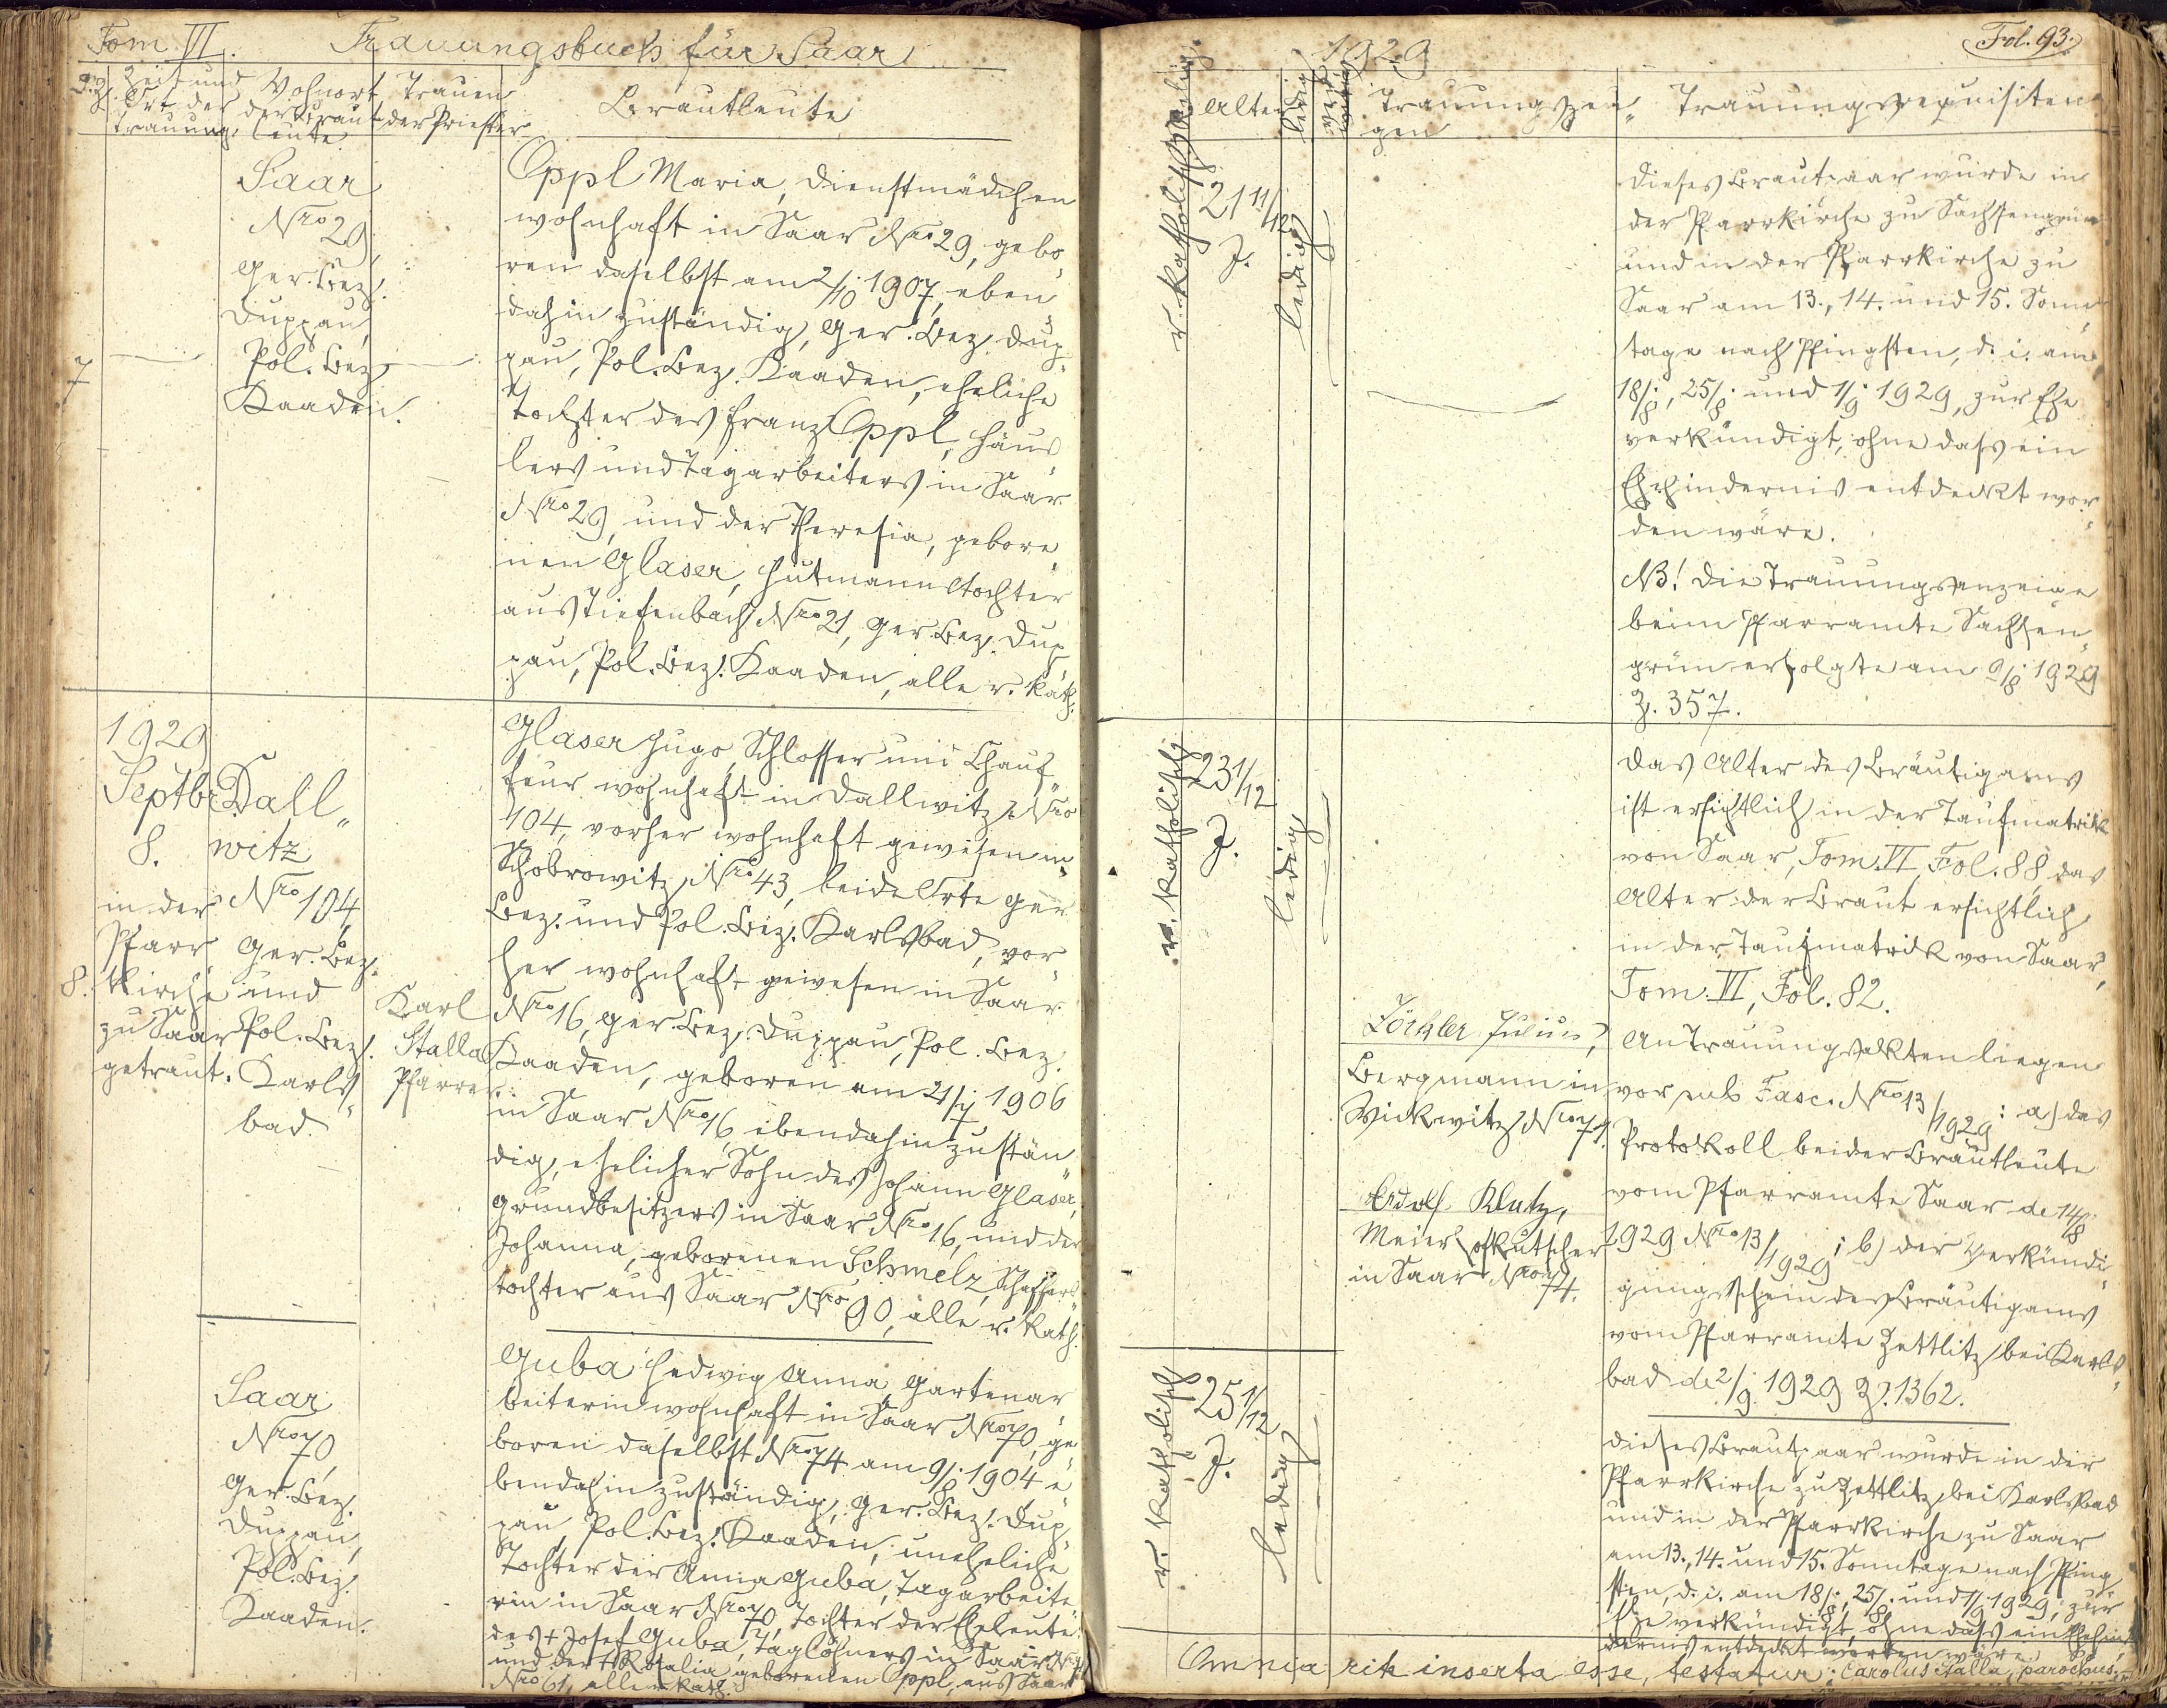 Tom VI.
Trauungsbuch für Saar
Zeit und
Ort der
Trauung.
Wohnort
der Braut-
leute
Trauen
der Priester
Brautleute
7
Saar
Nro 29,
Ger. Bez.
Duppau,
Pol. Bez.
Kaaden.
Oppl Maria, Dienstmädchen
wohnhaft in Saar Nro 29, gebo„
ren daselbst am 2/10 1907, eben„
dahin zuständig, Ger. Bez. Dup„
pau, Pol. Bez. Kaaden, eheliche
Tochter des Franz Oppl, Häus„
lers und Tagarbeiters in Saar
Nro 29, und der Theresia, gebore„
nen Glaser, Hutmannstochter
aus Tiefenbach Nro 21, Ger. Bez. Dup„
pau, Pol. Bez. Kaaden, alle r. kath.
8.
1929
Septbr
8.
in der
Pfarr„
kirche
zu Saar
getraut.
Dall„
witz
Nro 104,
Ger. Bez.
und
Pol. Bez.
Karls„
bad.
Karl
Stalla
Pfarrer.
Glaser Hugo, Schlosser und Chauf„
feur wohnhaft in Dallwitz Nro
104, vorher wohnhaft gewesen in
Schobrowitz Nro 43, beide Orte Ger.
Bez. und Pol. Bez. Karlsbad, vor„
her wohnhaft gewesen in Saar
Nro 16, Ger. Bez. Duppau, Pol. Bez.
Kaaden, geboren am 21/7 1906
in Saar Nro 16, ebendahin zustän„
dig, ehelicher Sohn des Johann Glaser,
Grundbesitzers in Saar Nro 16, und der
Johanna, geborenen Schmelz, Schaffers„
tochter aus Saar Nro 90, alle r. kath.
Saar
Nro 70,
Ger. Bez.
Duppau,
Pol. Bez.
Kaaden.
Guba Hedwig Anna, Gartenar„
beiterin wohnhaft in Saar Nro 70, ge„
boren daselbst Nro 74 am 9/8 1904 e„
bendahin zuständig, Ger. Bez. Dup„
pau, Pol. Bez. Kaaden, uneheliche
Tochter der Anna Guba, Tagarbeite„
rin in Saar Nro 70, Tochter der Eheleute:
des + Josef Guba, Taglöhners in Saar Nro 74
und der + Rosalia geborenen Oppl, aus Saar
Nro 61, alle r. kath.
1929
Fol. 93.
Religion
Alter
ledig
verwitwet
Trauungszeu„
gen
Trauungsrequisiten
r. katholisch
21 11/12
J.
ledig
Dieses Brautpaar wurde in
der Pfarrkirche zu Sachsengrün
und in der Pfarrkirche zu
Saar am 13., 14. und 15. Sonn„
tage nach Pfingsten, d. i. am
18/8, 25/8 und 1/9 1929, zur Ehe
verkündigt, ohne dass ein
Ehehindernis entdeckt wor„
den wäre.
NB! Die Trauungsanzeige
beim Pfarramte Sachsen„
grün erfolgte am 9/8 1929
Z. 357.
r. katholisch
23 1/12
J.
ledig
Löckler Julius,
Bergmann in
Wickwitz Nro 71.
Adolf Klutz,
Meierhofkutscher
in Saar Nro 74.
Das Alter des Bräutigams
ist ersichtlich in der Taufmatrik
von Saar, Tom. VI, Fol. 88 das
Alter der Braut ersichtlich
in der Taufmatrik von Saar,
Tom. VI, Fol. 82.
An Trauungsakten liegen
vor sub Fasc. Nro 13/1929: a) das
Protokoll beider Brautleute
vom Pfarramte Saar de 14/8
1929 Nro 13/1929; b) der Verkündi„
gungsschein des Bräutigams
vom Pfarramte Zettlitz bei Karls„
bad de 2/9 1929 Z. 1362.
r. katholisch
25 1/12
J.
ledig
Dieses Brautpaar wurde in der
Pfarrkirche zu Zettlitz bei Karlsbad
und in der Pfarrkirche zu Saar
am 13., 14. und 15. Sonntage nach Pfing„
sten, d. i. am 18/8, 25/8 und 1/9 1929, zur
Ehe verkündigt, ohne dass ein Ehehin„
dernis entdeckt worden wäre.
Omnia rite inserta esse, testatur: Carolus Stalla, parochus.